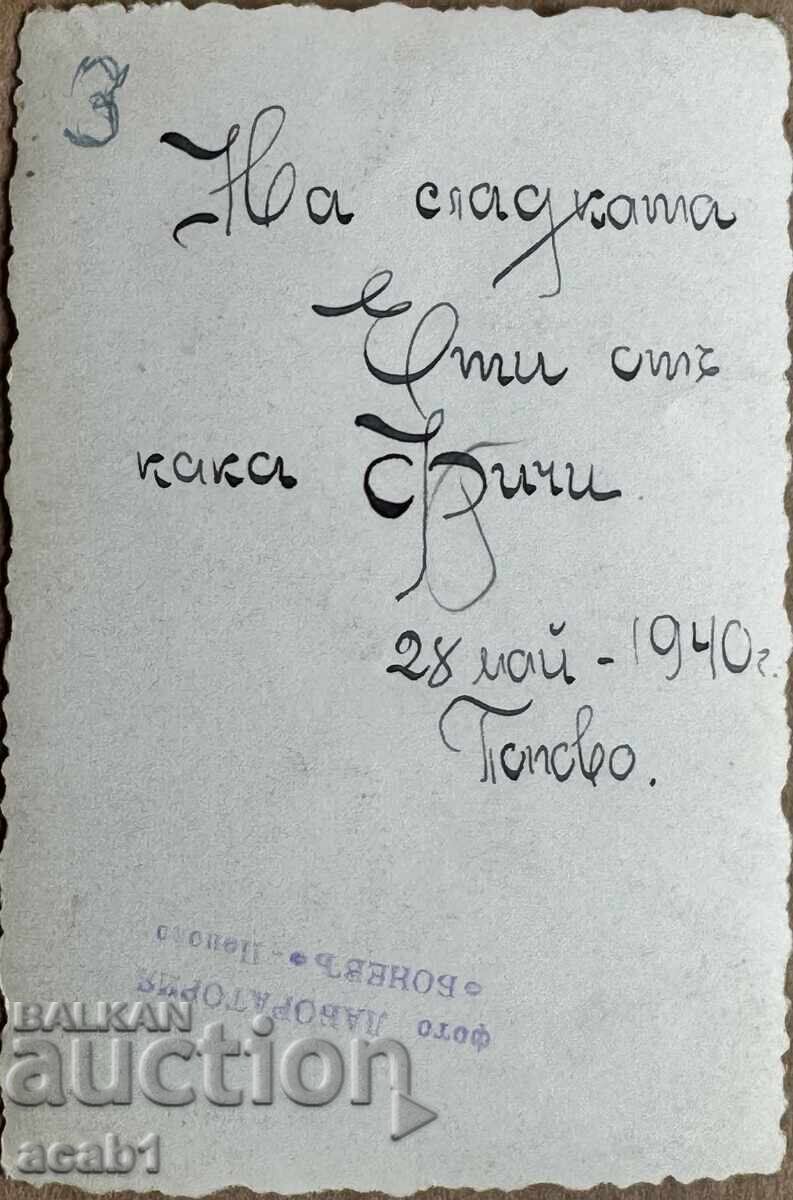 3
На сладката
Ети отъ
кака Фичи
28 май - 1940 г.
Попово.
ФОТО ЛАБОРАТОРИЯ
„БОНЕВЪ“ - Попово
BALKAN
auction
acab1